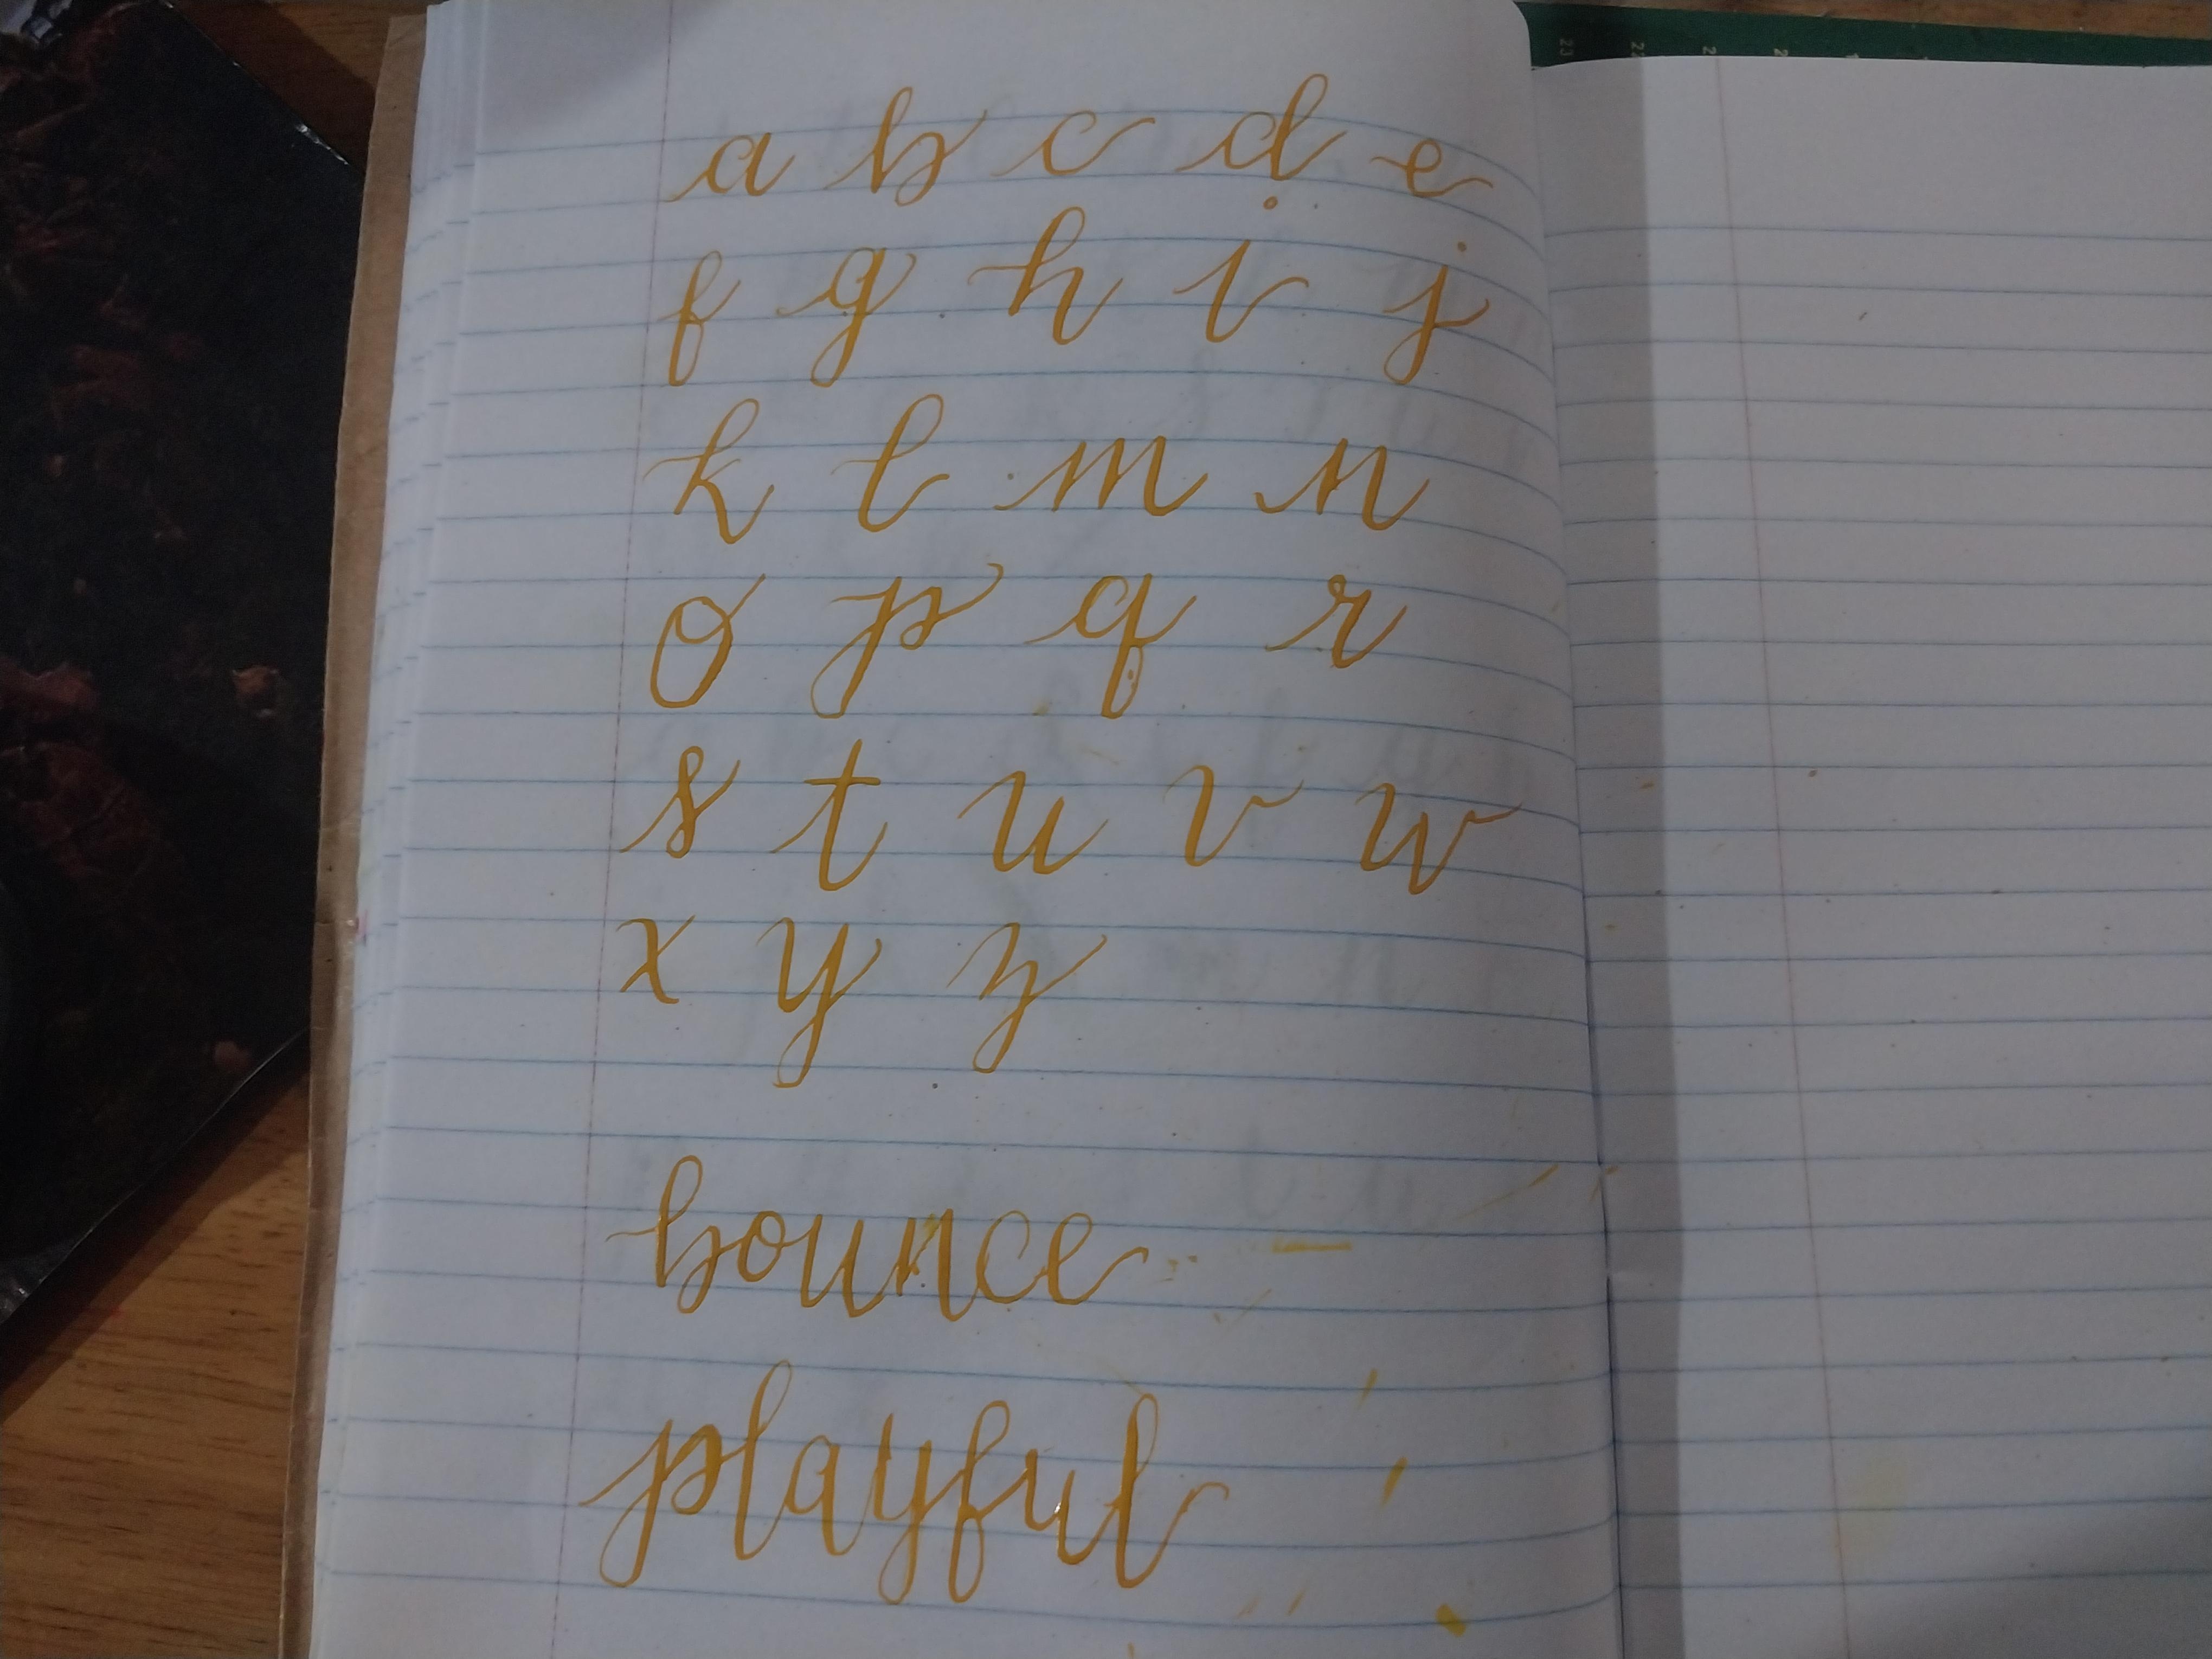 a b c d e
f g h i j
k l m n
o p q r
s t u v w
x y z
bounce
playful